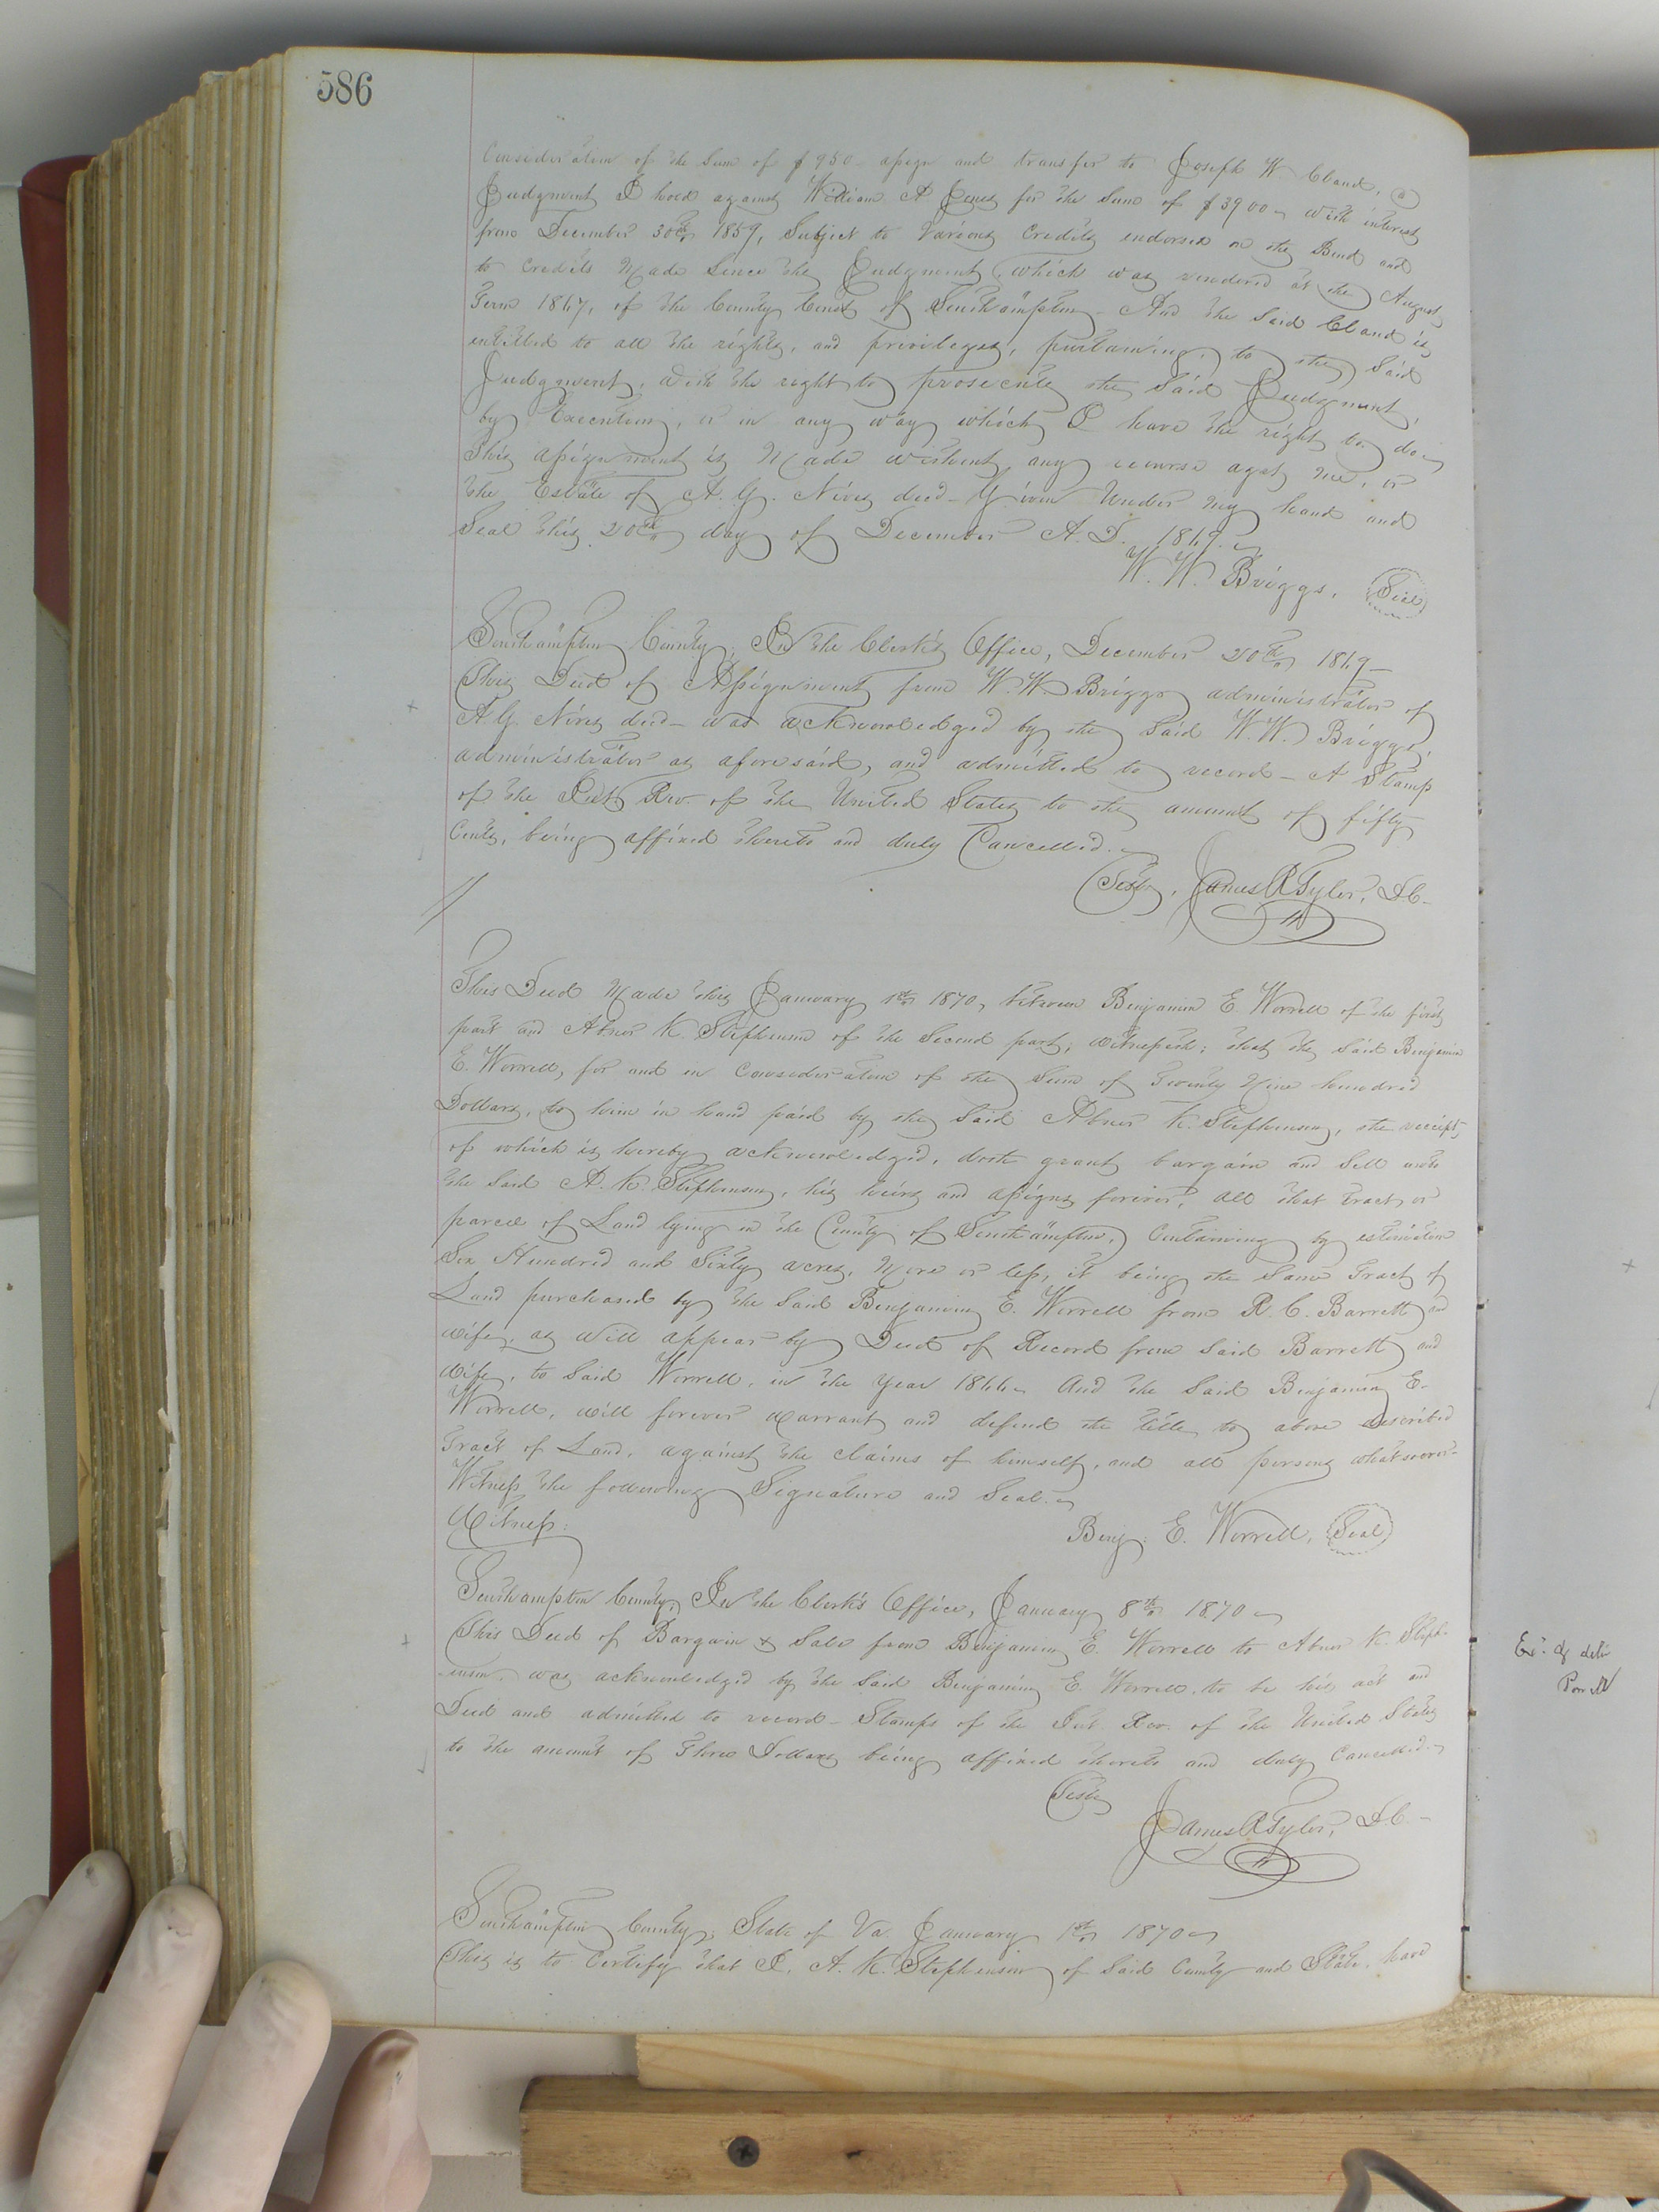 586
Consideration of the Sum of $950 - assign and transfer to Joseph W Cland, a
Judgment I hold against William A Jones for the Sum of $3900 with interest
from December 30th 1859, Subject to Various Credits endorsed on the Bond and
to Credits Made Since the Judgment, which was rendered at the August
Term 1867, of the County Court of Southampton - And the Said Cland is
entitled to all the rights, and privileges, pertaining to the Said
Judgment, with the right to prosecute the Said Judgment,
by Execution, or in any way which I have the right to do
This assignment is Made without any recourse agst me, or
the Estate of A. G. Nives decd - Given Under my hand and
Seal this 20th day of December A.D. 1869.
W. W. Briggs, Seal
Southampton County; In the Clerk's Office, December 20th 1869 -
This Deed of Assignment from W. W. Briggs administrator of
A G. Nives decd - was acknowledged by the Said W. W. Briggs,
administrator as aforesaid, and admitted to record - A Stamp
of the Int Rev. of the United States to the amount of fifty
Cents, being affixed thereto and duly Cancelled.
Teste, James R Tyler, D.C. -
This Deed Made this January 1st 1870, between Benjamin E. Worrell of the first
part and Abner K. Stephenson of the Second part; witnesseth; that the Said Benjamin
E. Worrell, for and in Consideration of the Sum of Twenty Nine hundred
Dollars, to him in hand paid by the Said Abner K. Stephenson, the receipt
of which is hereby acknowledged, doth grant bargain and Sell unto
the Said A. K. Stephenson, his heirs and assigns forever, all that Tract or
parcel of Land lying in the County of Southampton, Containing by estimation
Six Hundred and Sixty acres, More or less, it being the Same Tract of
Land purchased by the Said Benjamin E. Worrell from R. C. Barrett and
wife, as will appear by Deed of Record from Said Barrett and
wife, to Said Worrell, in the Year 1866 And the Said Benjamin E.
Worrell, will forever warrant and defend the title to above described
Tract of Land, against the claims of himself, and all persons whatsoever -
Witness the following Signature and Seal.
Witness:
Benj. E. Worrell, Seal
Southampton County, In the Clerk's Office, January 8th 1870
This Deed of Bargain & Sale from Benjamin E. Worrell to Abner K. Steph-
enson, was acknowledged by the Said Benjamin E. Worrell, to be his act and
Deed and admitted to record - Stamps of the Int. Rev. of the United States
to the amount of Three Dollars being affixed thereto and duly Cancelled.
Teste
James R Tyler, D.C. -
Southampton County, State of Va. January 1st 1870
This is to Certify that I, A. K. Stephenson of Said County and State, have